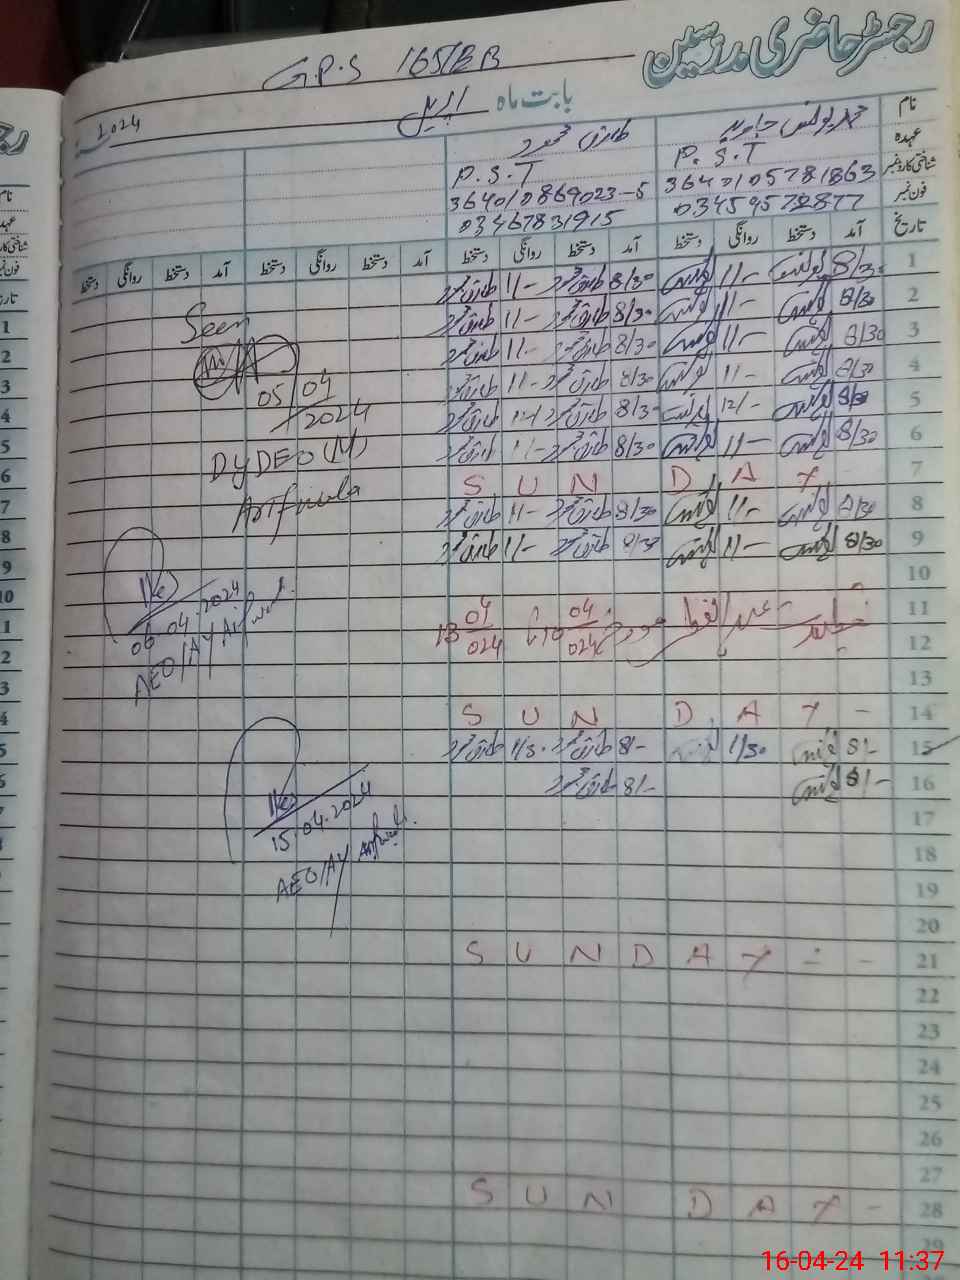 رجسٹر حاضری مدرسین
G.P.S 165/EB
بابت ماہ اپریل 2024
نام محمد یونس جاوید طارق محمود
عہدہ P.S.T P.S.T
شناختی کارڈ نمبر 3640105781863 364010869023-5
فون نمبر 03467831915
تاریخ آمد دستخط روانگی دستخط آمد دستخط روانگی دستخط آمد دستخط روانگی دستخط آمد دستخط روانگی دستخط
1 8/30 یونس 11/- یونس 8/30 طارق محمود 11/- طارق محمود
2 8/30 یونس 11/- یونس 8/30 طارق محمود 11/- طارق محمود
3 8/30 یونس 11/- یونس 8/30 طارق محمود 11/- طارق محمود
4 8/30 یونس 11/- یونس 8/30 طارق محمود 11/- طارق محمود
5 8/30 یونس 12/- یونس 8/30 طارق محمود طارق محمود
6 8/30 یونس 11/- یونس 8/30 طارق محمود 11/- طارق محمود
7 S U N D A Y -
8 8/30 یونس 11/- یونس 8/30 طارق محمود 11/- طارق محمود
9 8/30 یونس 11/- یونس 8/30 طارق محمود 11/- طارق محمود
10
11 تعطیلات عید الفطر مورخہ 10 04/024 تا 13 04/024
12
13
14 S U N D A Y -
15 8/- یونس 1/30 یونس 8/- طارق محمود 1/30 طارق محمود
16 8/- یونس 8/- طارق محمود
17
18
19
20
21 S U N D A Y - -
22
23
24
25
26
27
28 S U N D A Y -
29
Seen
05/04/2024
DYDEO(M)
Arifwala
06.04.2024
AEO/AY Arifwala
15.04.2024
AEO/AY Arifwala
16-04-24 11:37